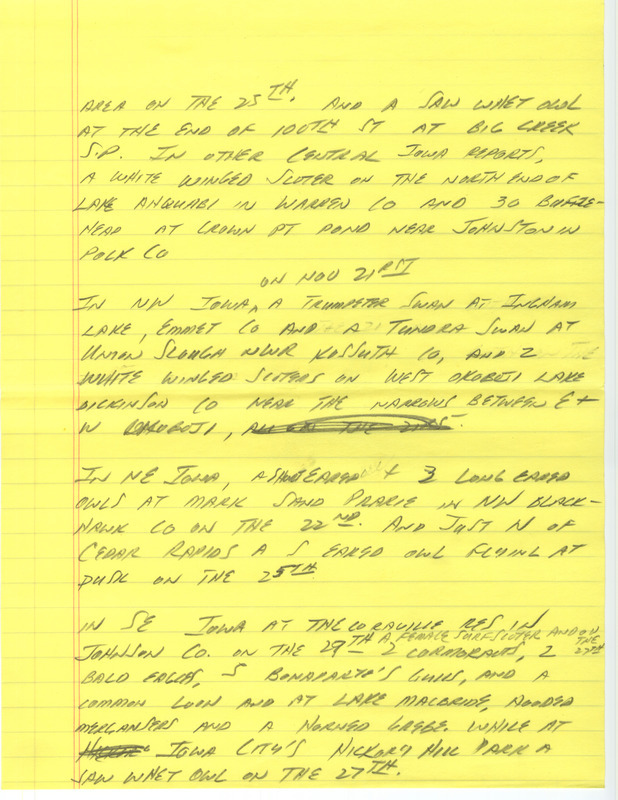 AREA ON THE 25TH. AND A SAW WHET OWL
AT THE END OF 100TH ST AT BIG CREEK
S.P. IN OTHER CENTRAL IOWA REPORTS,
A WHITE WINGED SCOTER ON THE NORTH END OF
LAKE AHQUABI IN WARREN CO AND 30 BUFFLE-
HEAD AT CROWN PT POND NEAR JOHNSTON IN
POLK CO
ON NOV 21RST
IN NW IOWA, A TRUMPETER SWAN AT INGHAM
LAKE, EMMET CO AND A TUNDRA SWAN AT
UNION SLOUGH NWR KOSSUTH CO, AND 2
WHITE WINGED SCOTERS ON WEST OKOBOJI LAKE
DICKINSON CO NEAR THE NARROWS BETWEEN E +
W OKOBOJI,
IN NE IOWA, A SHORT EARED + 3 LONG EARED
OWLS AT MARK SAND PRARIE IN NW BLACK-
HAWK CO ON THE 22ND. AND JUST N OF
CEDAR RAPIDS A S EARED OWL FLYING AT
DUSK ON THE 25TH
IN SE IOWA AT THE CORAVILLE RES IN
JOHNSON CO. ON THE 29TH A FEMALE SURF SCOTER AND ON THE 27TH 2 CORMORANTS, 2
BALD EAGLES, 5 BONAPARTE'S GULLS, AND A
COMMON LOON AND AT LAKE MACBRIDE, HOODED
MERGANSERS AND A HORNED GREBE. WHILE AT
IOWA CITY'S HICKORY HILL PARK A
SAW WHET OWL ON THE 27TH.